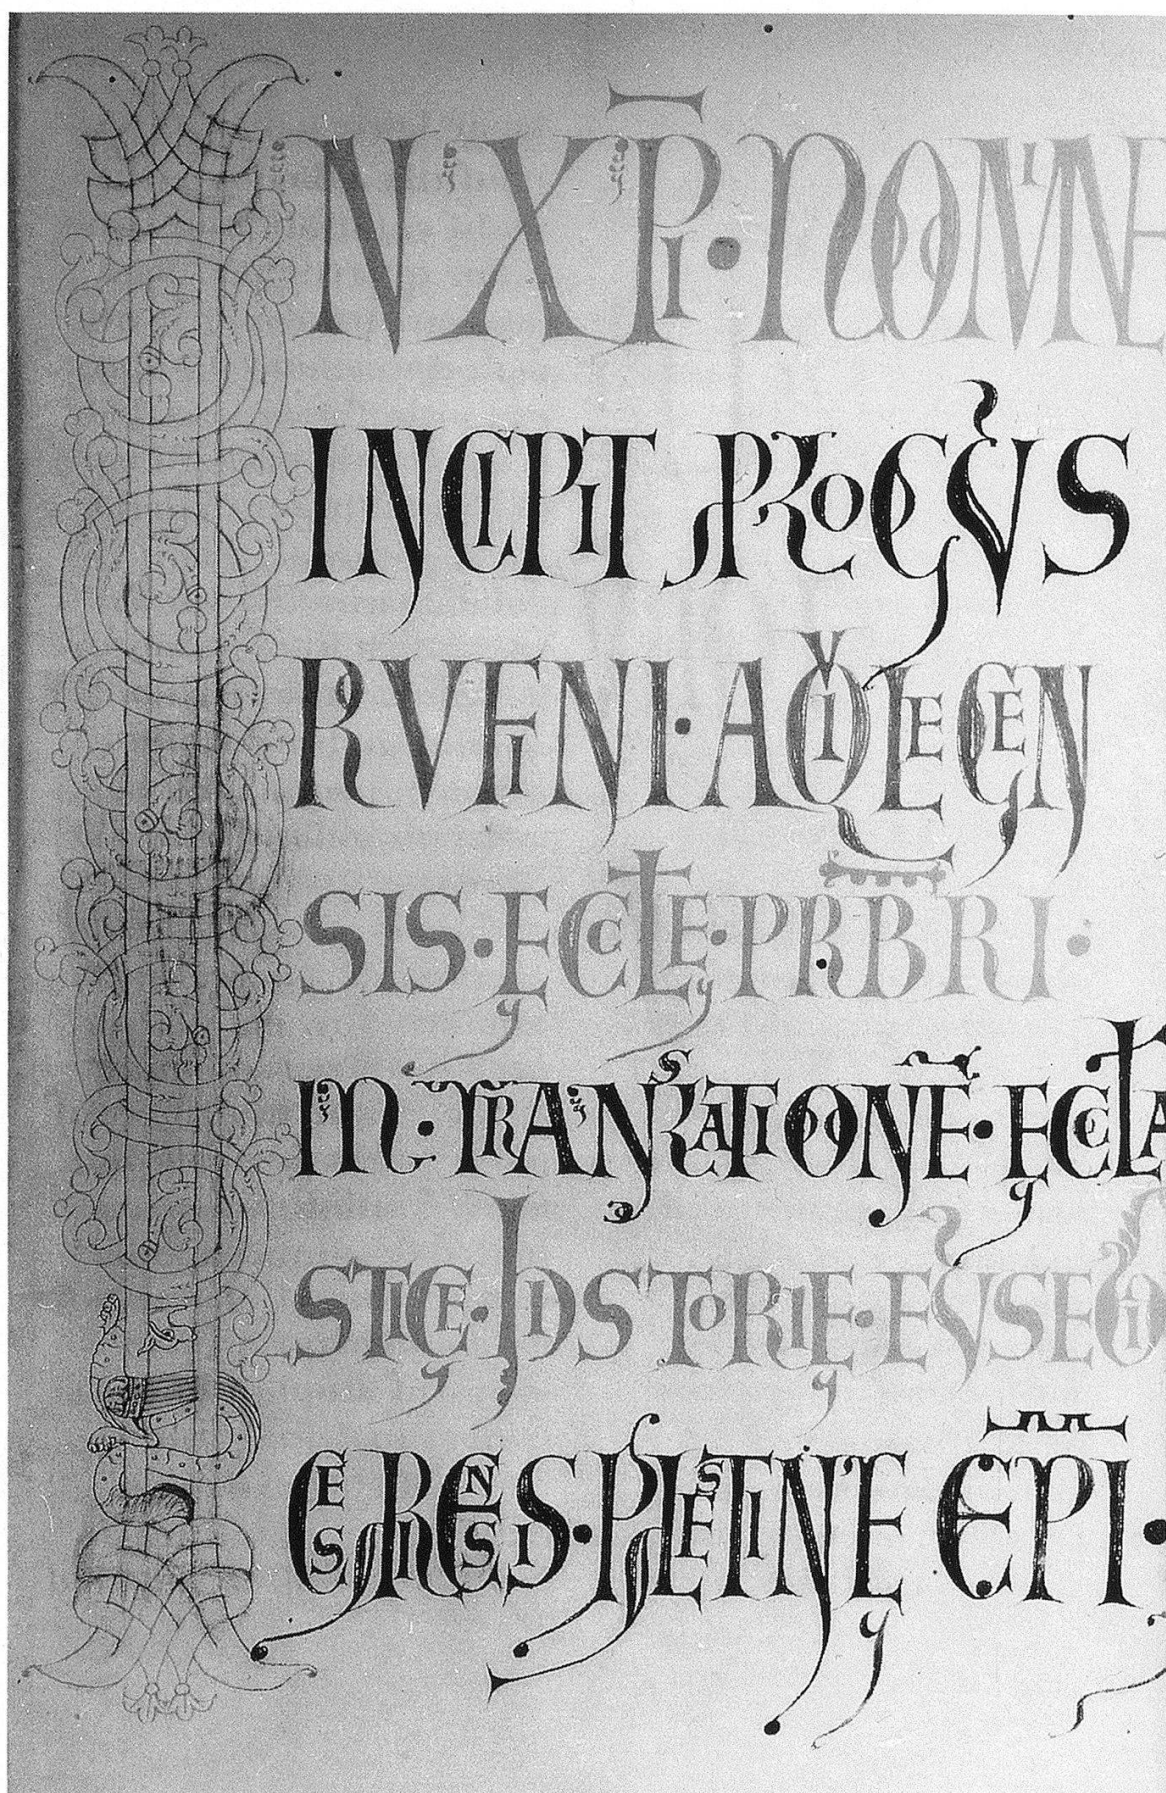 IN XP̅I · NOMINE
INCIPIT PROLOGVS
RVFINI · AQVILEGEN
SIS · ĘCCLĘ · PRB̅RI ·
IN · TRANSLATIONE̅ · ĘCCLA
STICĘ · HISTORIĘ · EVSEBII
CESARIENSIS · PALESTINĘ EP̅I ·